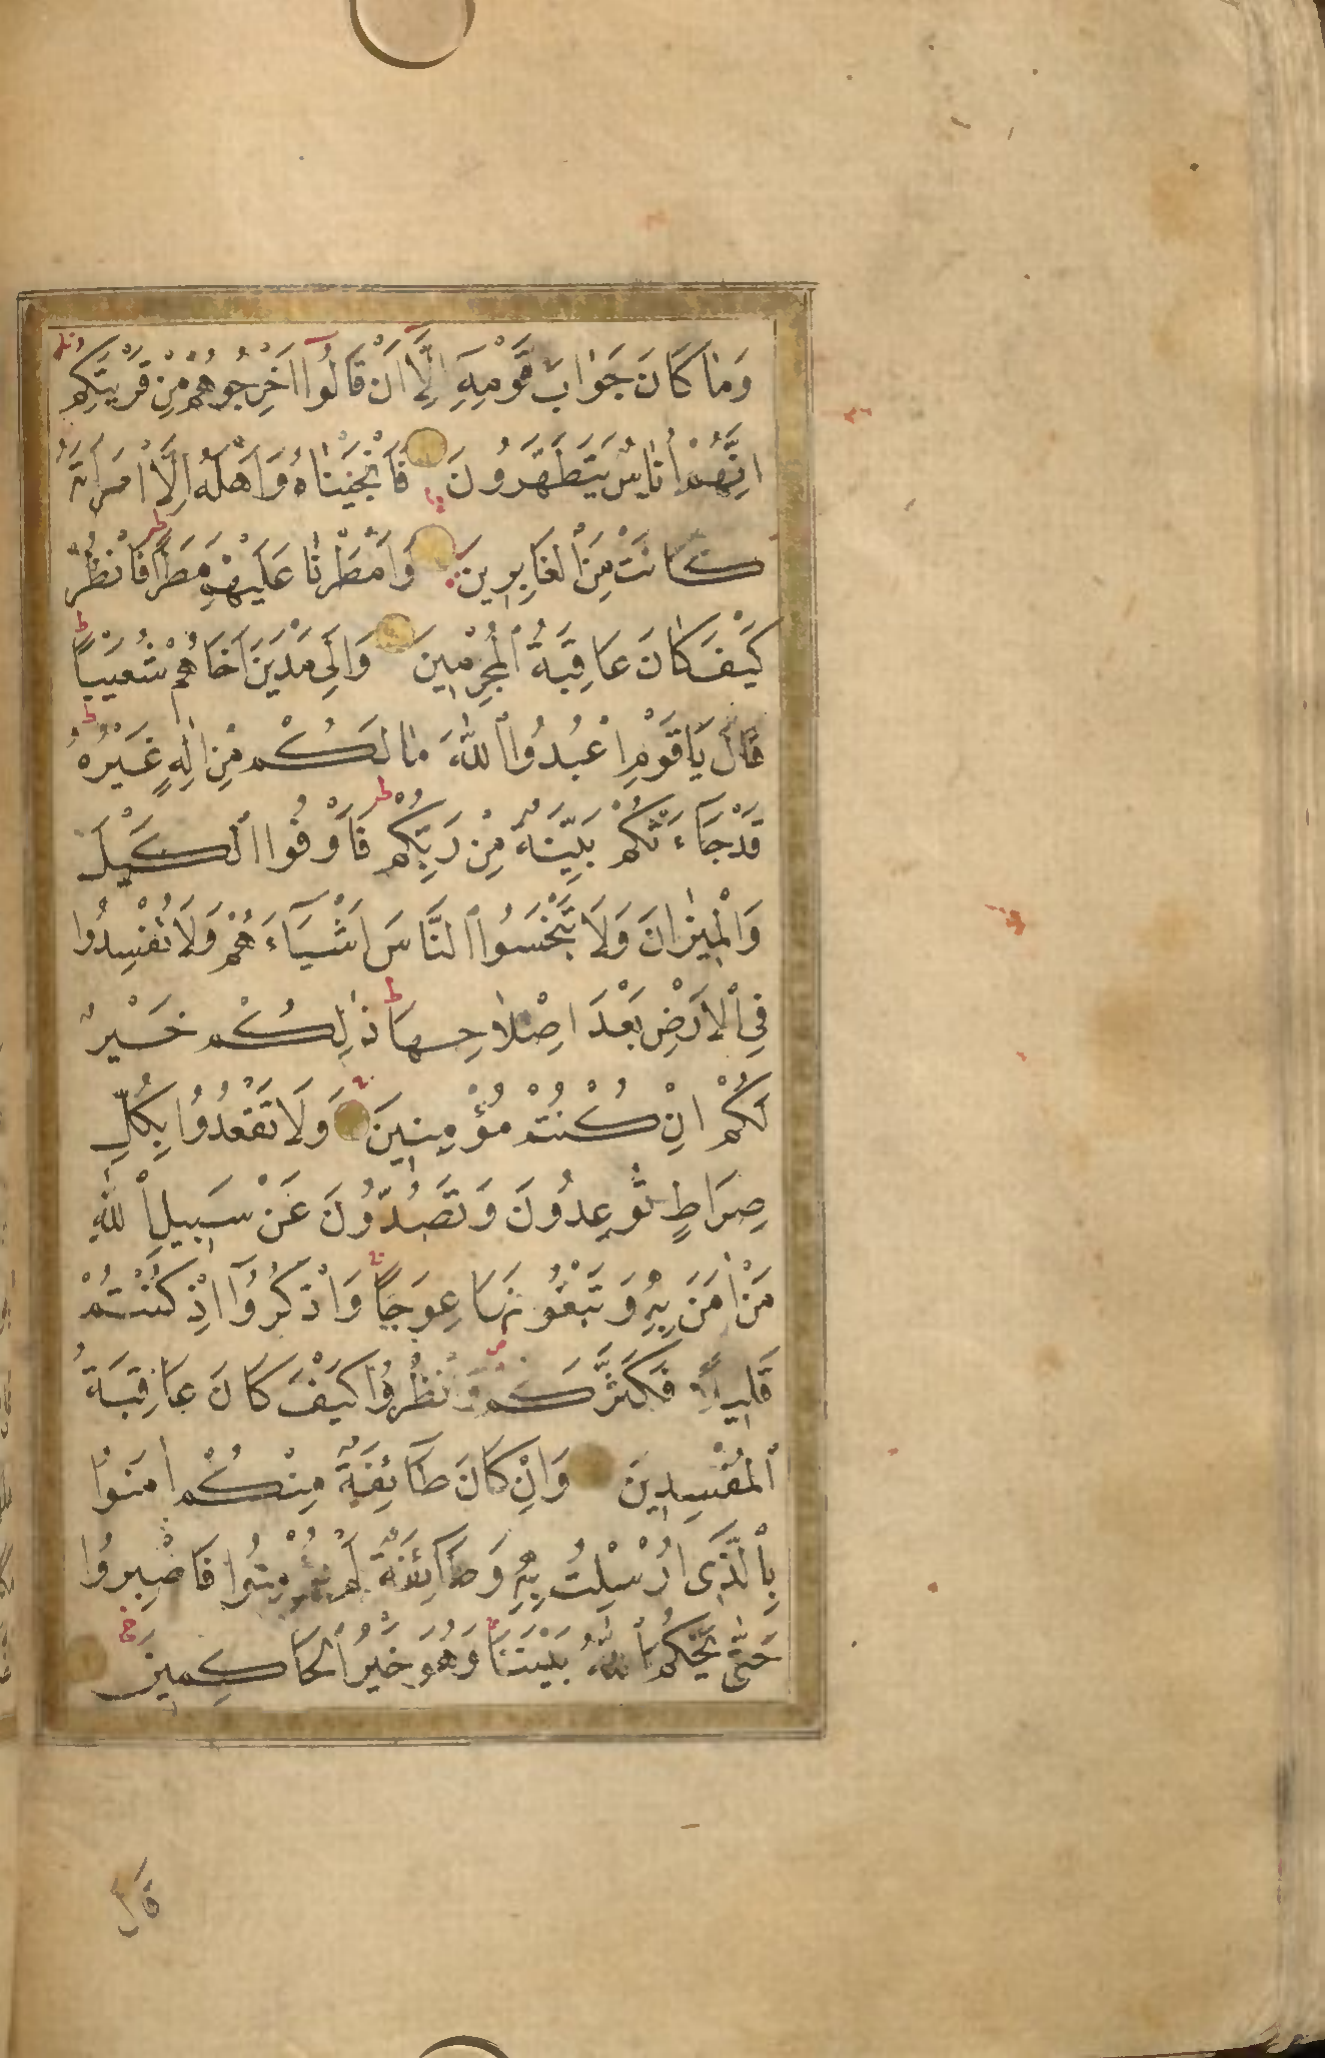 وَمَا كَانَ جَوَابَ قَوْمِهٖٓ اِلَّٓا اَنْ قَالُٓوا اَخْرِجُوهُمْ مِنْ قَرْيَتِكُمْ
اِنَّهُمْ اُنَاسٌ يَتَطَهَّرُونَ فَاَنْجَيْنَاهُ وَاَهْلَهُ اِلَّا امْرَاَتَهُ
كَانَتْ مِنَ الْغَابِرِينَ وَاَمْطَرْنَا عَلَيْهِمْ مَطَرًا فَانْظُرْ
كَيْفَ كَانَ عَاقِبَةُ الْمُجْرِمِينَ وَاِلٰى مَدْيَنَ اَخَاهُمْ شُعَيْبًا
قَالَ يَا قَوْمِ اعْبُدُوا اللّٰهَ مَا لَكُمْ مِنْ اِلٰهٍ غَيْرُهُ
قَدْ جَٓاءَتْكُمْ بَيِّنَةٌ مِنْ رَبِّكُمْ فَاَوْفُوا الْكَيْلَ
وَالْمِيزَانَ وَلَا تَبْخَسُوا النَّاسَ اَشْيَٓاءَهُمْ وَلَا تُفْسِدُوا
فِي الْاَرْضِ بَعْدَ اِصْلَاحِهَا ذٰلِكُمْ خَيْرٌ
لَكُمْ اِنْ كُنْتُمْ مُؤْمِنِينَ وَلَا تَقْعُدُوا بِكُلِّ
صِرَاطٍ تُوعِدُونَ وَتَصُدُّونَ عَنْ سَبِيلِ اللّٰهِ
مَنْ اٰمَنَ بِهٖ وَتَبْغُونَهَا عِوَجًا وَاذْكُرُٓوا اِذْ كُنْتُمْ
قَلِيلًا فَكَثَّرَكُمْ وَانْظُرُوا كَيْفَ كَانَ عَاقِبَةُ
الْمُفْسِدِينَ وَاِنْ كَانَ طَٓائِفَةٌ مِنْكُمْ اٰمَنُوا
بِالَّذِٓي اُرْسِلْتُ بِهٖ وَطَٓائِفَةٌ لَمْ يُؤْمِنُوا فَاصْبِرُوا
حَتّٰى يَحْكُمَ اللّٰهُ بَيْنَنَا وَهُوَ خَيْرُ الْحَاكِمِينَ
قَالَ